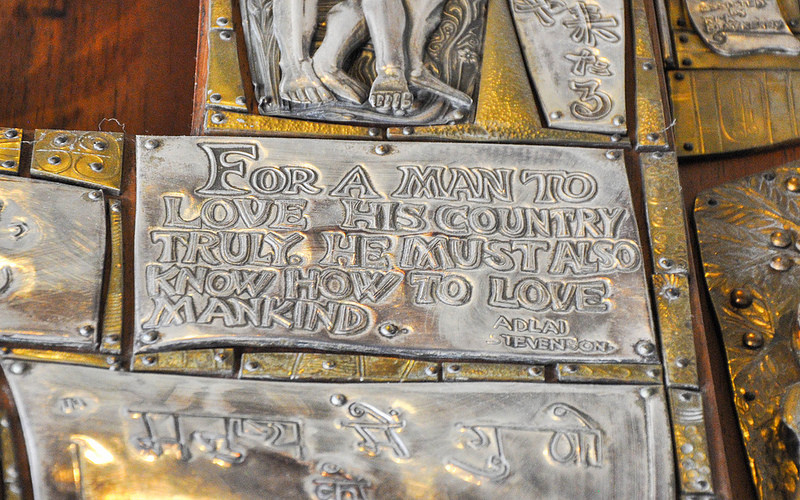 FOR A MAN TO
LOVE HIS COUNTRY
TRULY. HE MUST ALSO
KNOW HOW TO LOVE
MANKIND
ADLAI
TEVENSON
मनुष्य में गुणो
का